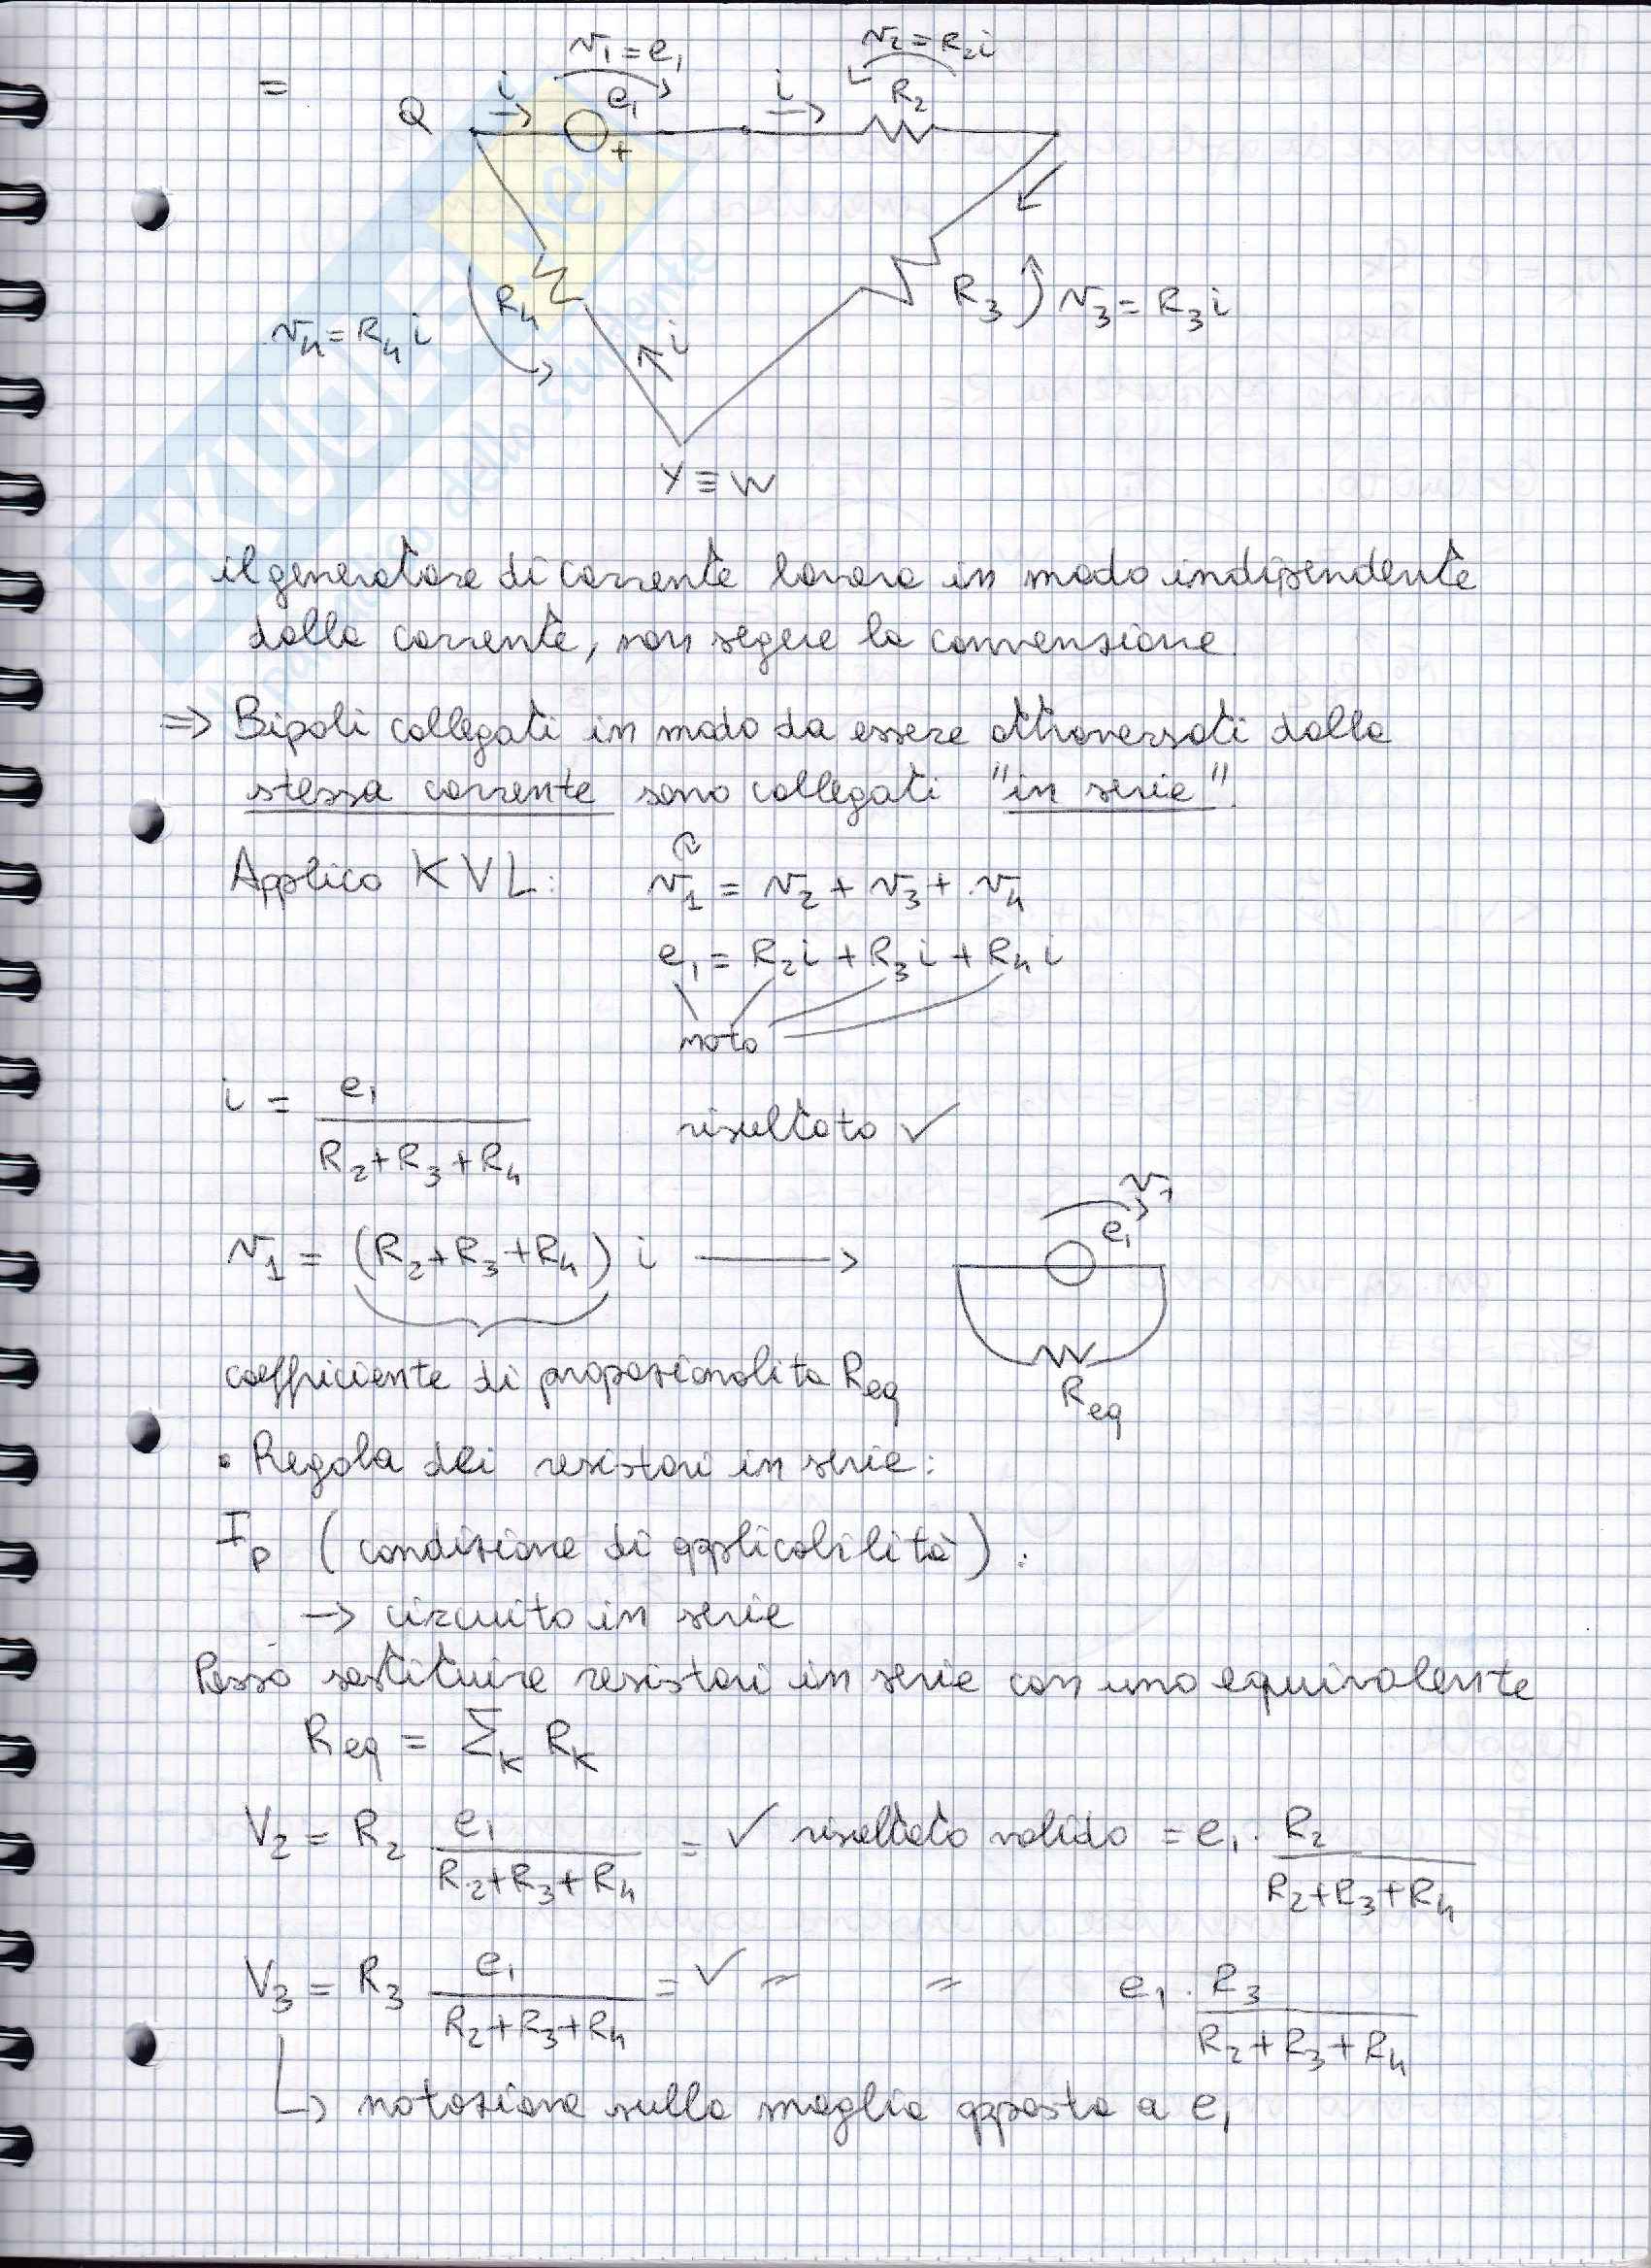 =
v₁ = e₁
v₂ = R₂i
Q
i
e₁
+
i
R₂
R₄
v₄ = R₄ i
i
R₃
v₃ = R₃ i
Y ≡ W
il generatore di corrente lavora in modo indipendente
dalla corrente, non segue la convenzione.
⇒ Bipoli collegati in modo da essere attraversati dalla
stessa corrente sono collegati "in serie".
Applico KVL: v₁ = v₂ + v₃ + v₄
e₁ = R₂ i + R₃ i + R₄ i
noto
i = e₁ / (R₂+R₃+R₄) risultato ✓
v₁ = (R₂+R₃+R₄) i ⟶
v₁
e₁
Req
coefficiente di proporzionalita Req
• Regola dei resistori in serie:
Ip (condizione di applicabilità):
→ circuito in serie
Posso sostituire resistori in serie con uno equivalente
Req = Σₖ Rₖ
V₂ = R₂ e₁ / (R₂+R₃+R₄) = ✓ risultato valido = e₁ · R₂ / (R₂+R₃+R₄)
V₃ = R₃ e₁ / (R₂+R₃+R₄) = ✓ = = e₁ · R₃ / (R₂+R₃+R₄)
↳ notazione sulla maglia opposta a e₁
SKUOLA.net
il paradiso dello studente